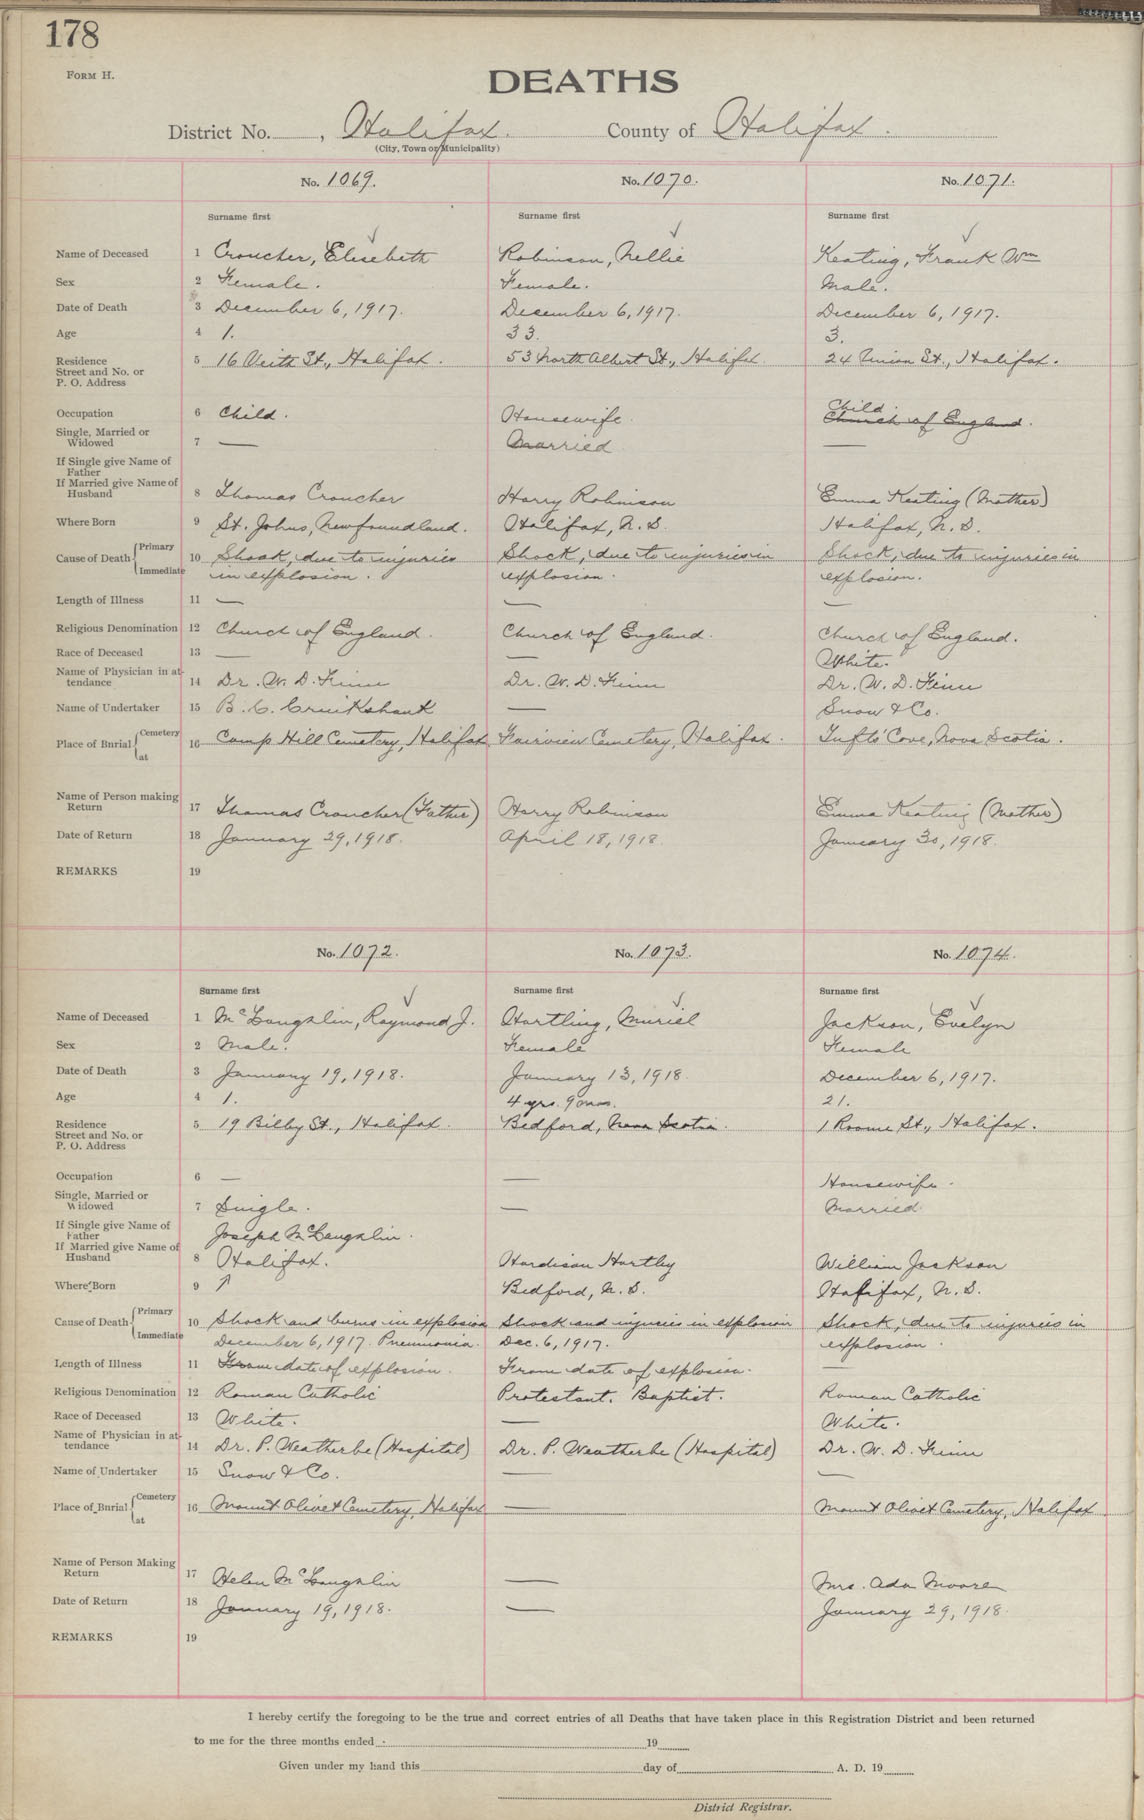 178
FORM H.
DEATHS
District No. , Halifax. County of Halifax.
(City, Town or Municipality)
No. 1069. No. 1070. No. 1071.
Surname first Surname first Surname first
Name of Deceased 1 Croucher, Elisebeth Robinson, Nellie Keating, Frank Wm
Sex 2 Female. Female. Male.
Date of Death 3 December 6, 1917. December 6, 1917. December 6, 1917.
Age 4 1. 33. 3.
Residence 5 16 Veith St., Halifax. 53 North Albert St., Halifax 24 Union St., Halifax.
Street and No. or
P. O. Address
Child.
Occupation 6 Child. Housewife. Church of England.
Single, Married or
Widowed 7 — Married —
If Single give Name of
Father
If Married give Name of
Husband 8 Thomas Croucher Harry Robinson Emma Keating (Mother)
Where Born 9 St. Johns, Newfoundland. Halifax, N.S. Halifax, N.S.
Cause of Death Primary 10 Shock, due to injuries Shock, due to injuries in Shock, due to injuries in
Immediate in explosion. explosion. explosion.
Length of Illness 11 — — —
Religious Denomination 12 Church of England. Church of England. Church of England.
Race of Deceased 13 — — White.
Name of Physician in at-
tendance 14 Dr. W. D. Finn Dr. W. D. Finn Dr. W. D. Finn
Name of Undertaker 15 B. C. Cruikshank — Snow & Co.
Place of Burial Cemetery 16 Camp Hill Cemetery, Halifax Fairview Cemetery, Halifax. Tufts' Cove, Nova Scotia.
at
Name of Person making
Return 17 Thomas Croucher (Father) Harry Robinson Emma Keating (Mother)
Date of Return 18 January 29, 1918. April 18, 1918 January 30, 1918.
REMARKS 19
No. 1072. No. 1073. No. 1074.
Surname first Surname first Surname first
Name of Deceased 1 McLaughlin, Raymond J. Hartling, Muriel Jackson, Evelyn
Sex 2 Male. Female Female
Date of Death 3 January 19, 1918. January 13, 1918. December 6, 1917.
Age 4 1. 4 yrs. 9 mos. 21.
Residence 5 19 Bilby St., Halifax. Bedford, Nova Scotia. 1 Roome St., Halifax.
Street and No. or
P. O. Address
Occupation 6 — — Housewife.
Single, Married or
Widowed 7 Single. — Married
If Single give Name of
Father Joseph McLaughlin.
If Married give Name of
Husband 8 Halifax. Hardison Hartley William Jackson
Where Born 9 ↑ Bedford, N.S. Halifax, N.S.
Cause of Death Primary 10 Shock and burns in explosion Shock and injuries in explosion Shock, due to injuries in
Immediate December 6, 1917. Pneumonia. Dec. 6, 1917. explosion.
Length of Illness 11 From date of explosion. From date of explosion. —
Religious Denomination 12 Roman Catholic Protestant. Baptist. Roman Catholic
Race of Deceased 13 White. — White.
Name of Physician in at-
tendance 14 Dr. P. Weatherbe (Hospital) Dr. P. Weatherbe (Hospital) Dr. W. D. Finn
Name of Undertaker 15 Snow & Co. — —
Place of Burial Cemetery 16 Mount Olivet Cemetery, Halifax — Mount Olivet Cemetery, Halifax
at
Name of Person Making
Return 17 Helen McLaughlin — Mrs. Ada Moore
Date of Return 18 January 19, 1918. — January 29, 1918.
REMARKS 19
I hereby certify the foregoing to be the true and correct entries of all Deaths that have taken place in this Registration District and been returned
to me for the three months ended 19
Given under my hand this day of A. D. 19
District Registrar.